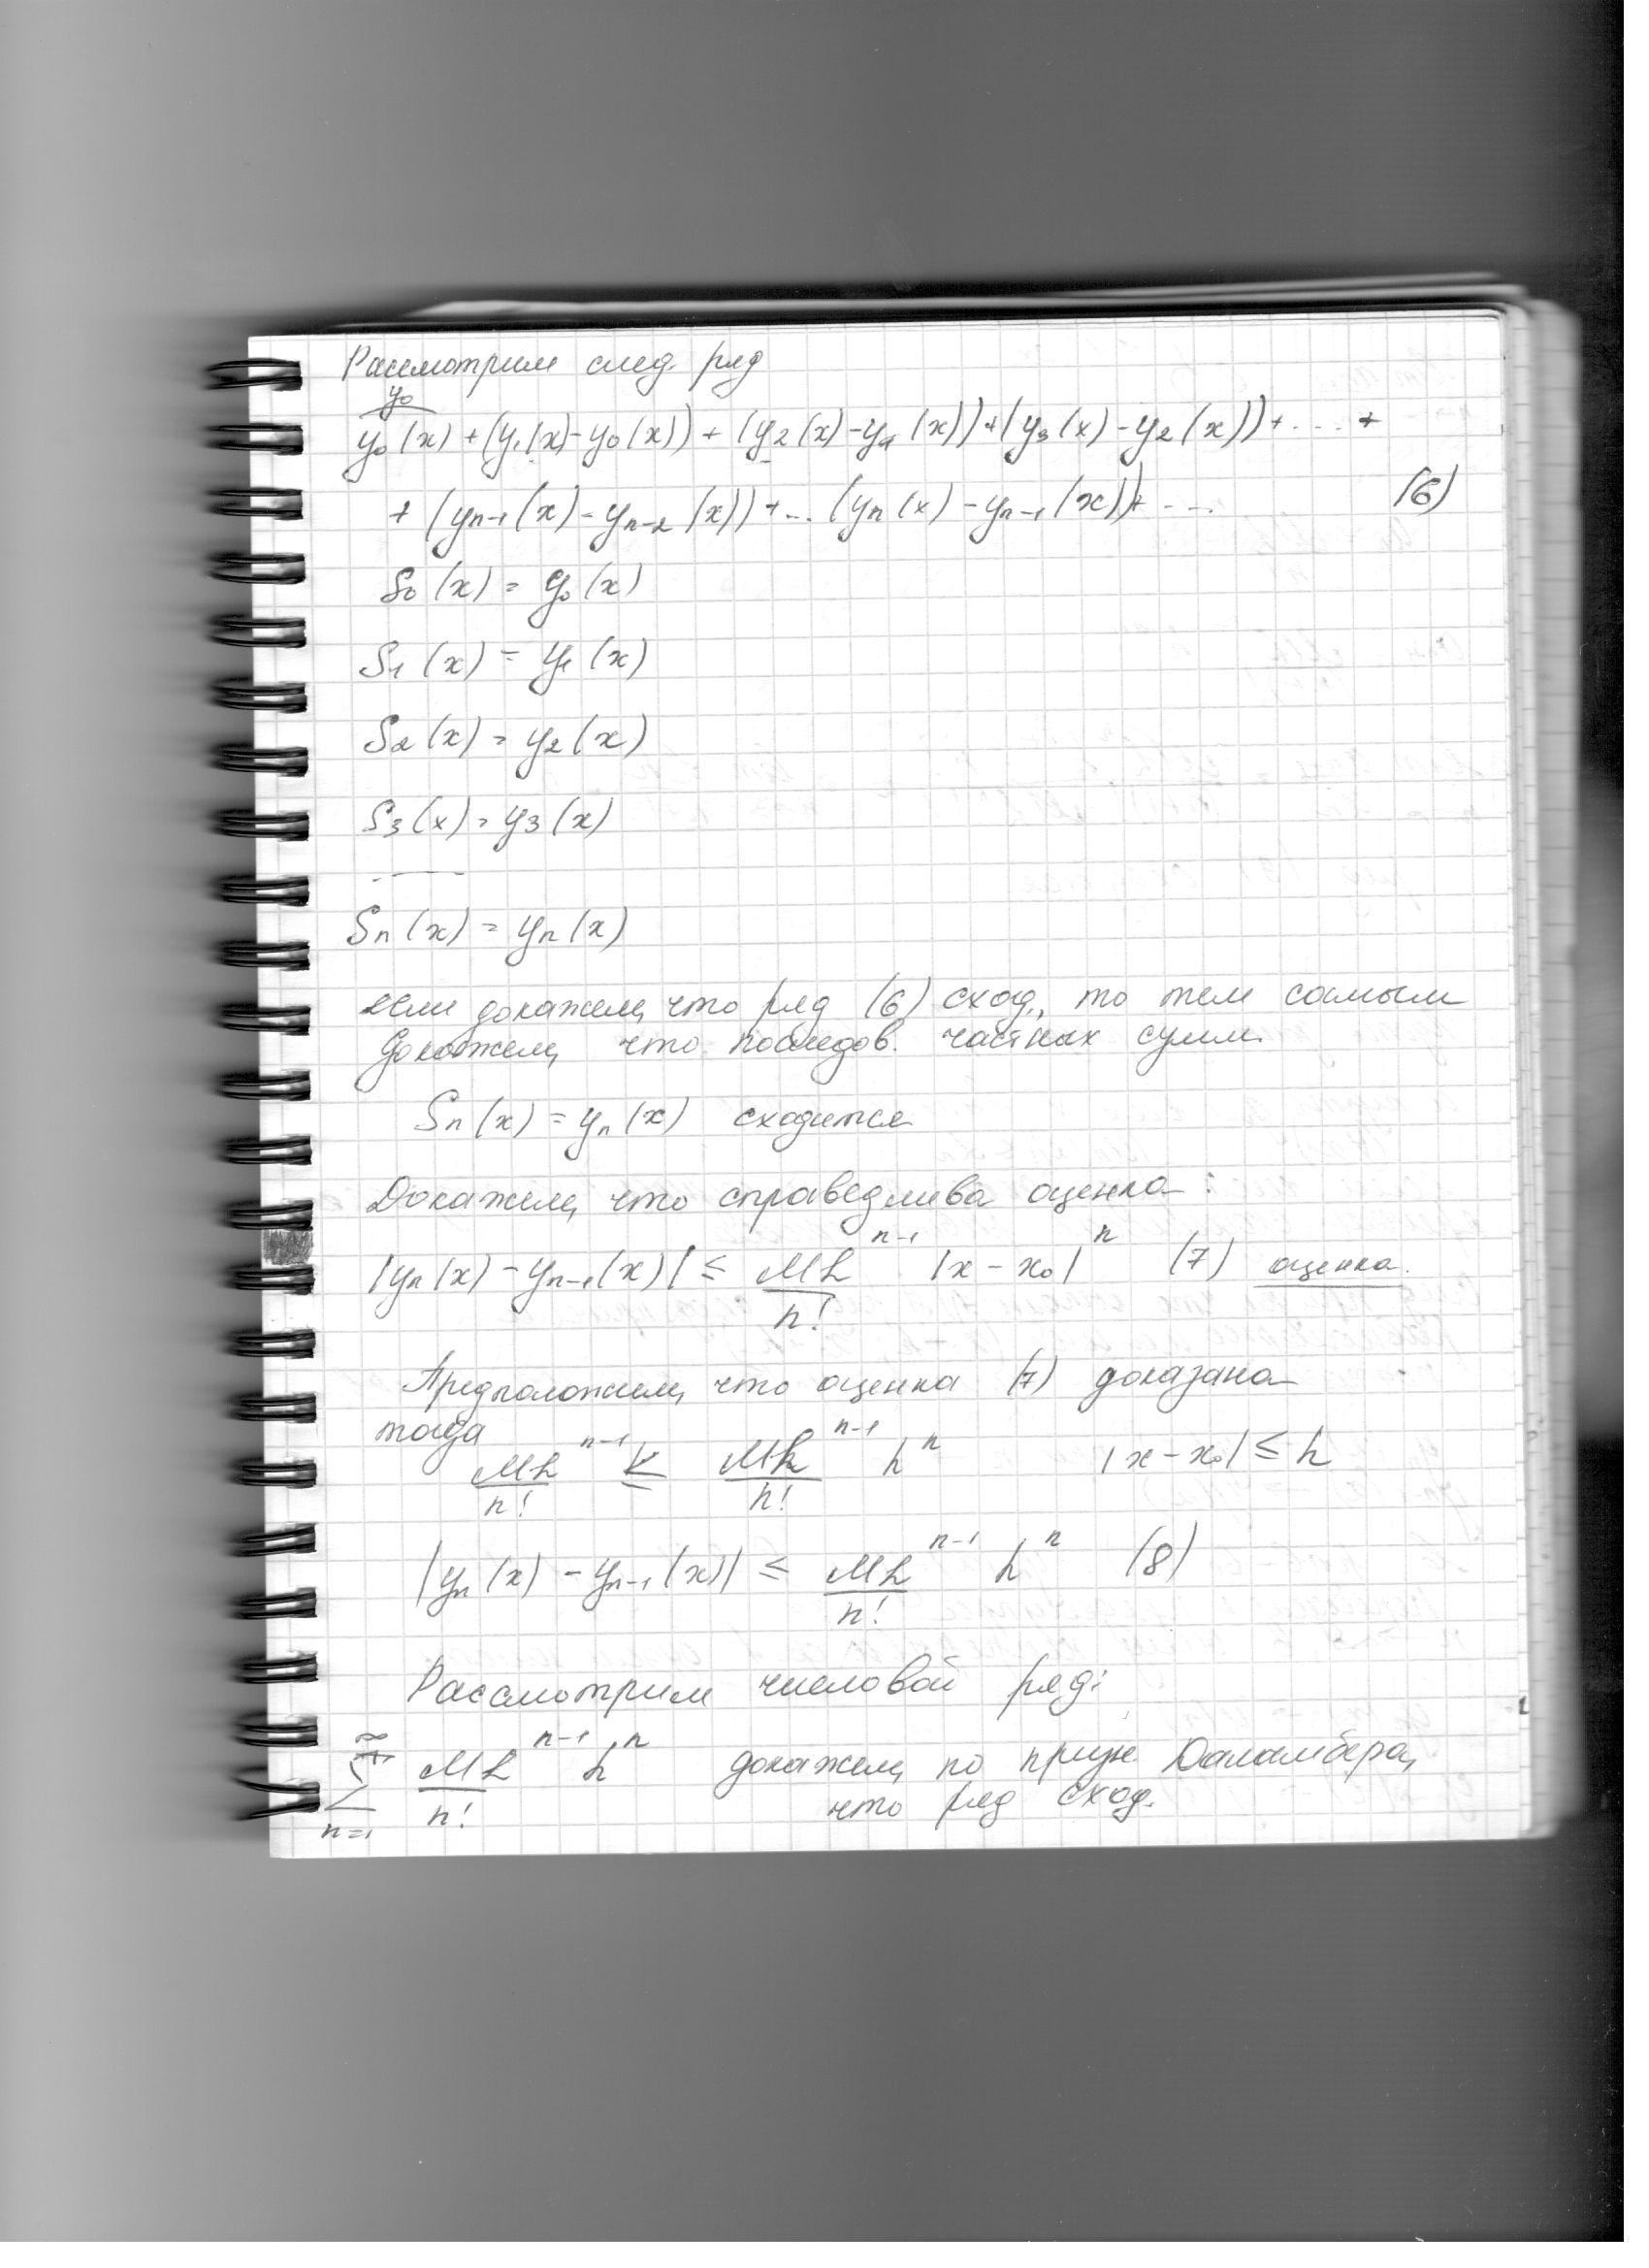 Рассмотрим след. ряд
y₀
y₀(x) + (y₁(x) - y₀(x)) + (y₂(x) - y₁(x)) + (y₃(x) - y₂(x)) + ... +
+ (yₙ₋₁(x) - yₙ₋₂(x)) + ... (yₙ(x) - yₙ₋₁(x)) + ... (6)
S₀(x) = y₀(x)
S₁(x) = y₁(x)
S₂(x) = y₂(x)
S₃(x) = y₃(x)
Sₙ(x) = yₙ(x)
если докажем, что ряд (6) сход., то тем самым
докажем, что последов. частных сумм.
Sₙ(x) = yₙ(x) сходится
Докажем, что справедлива оценка:
|yₙ(x) - yₙ₋₁(x)| ≤ ML^(n-1)/n! |x - x₀|^n (7) оценка.
Предположим, что оценка (7) доказана
тогда
ML^(n-1)/n! ≤ ML^(n-1)/n! h^n |x - x₀| ≤ h
|yₙ(x) - yₙ₋₁(x)| ≤ ML^(n-1)/n! h^n (8)
Рассмотрим числовой ряд:
∑ n=1 ∞ ML^(n-1)/n! h^n докажем, по призн. Даламбера,
что ряд сход.